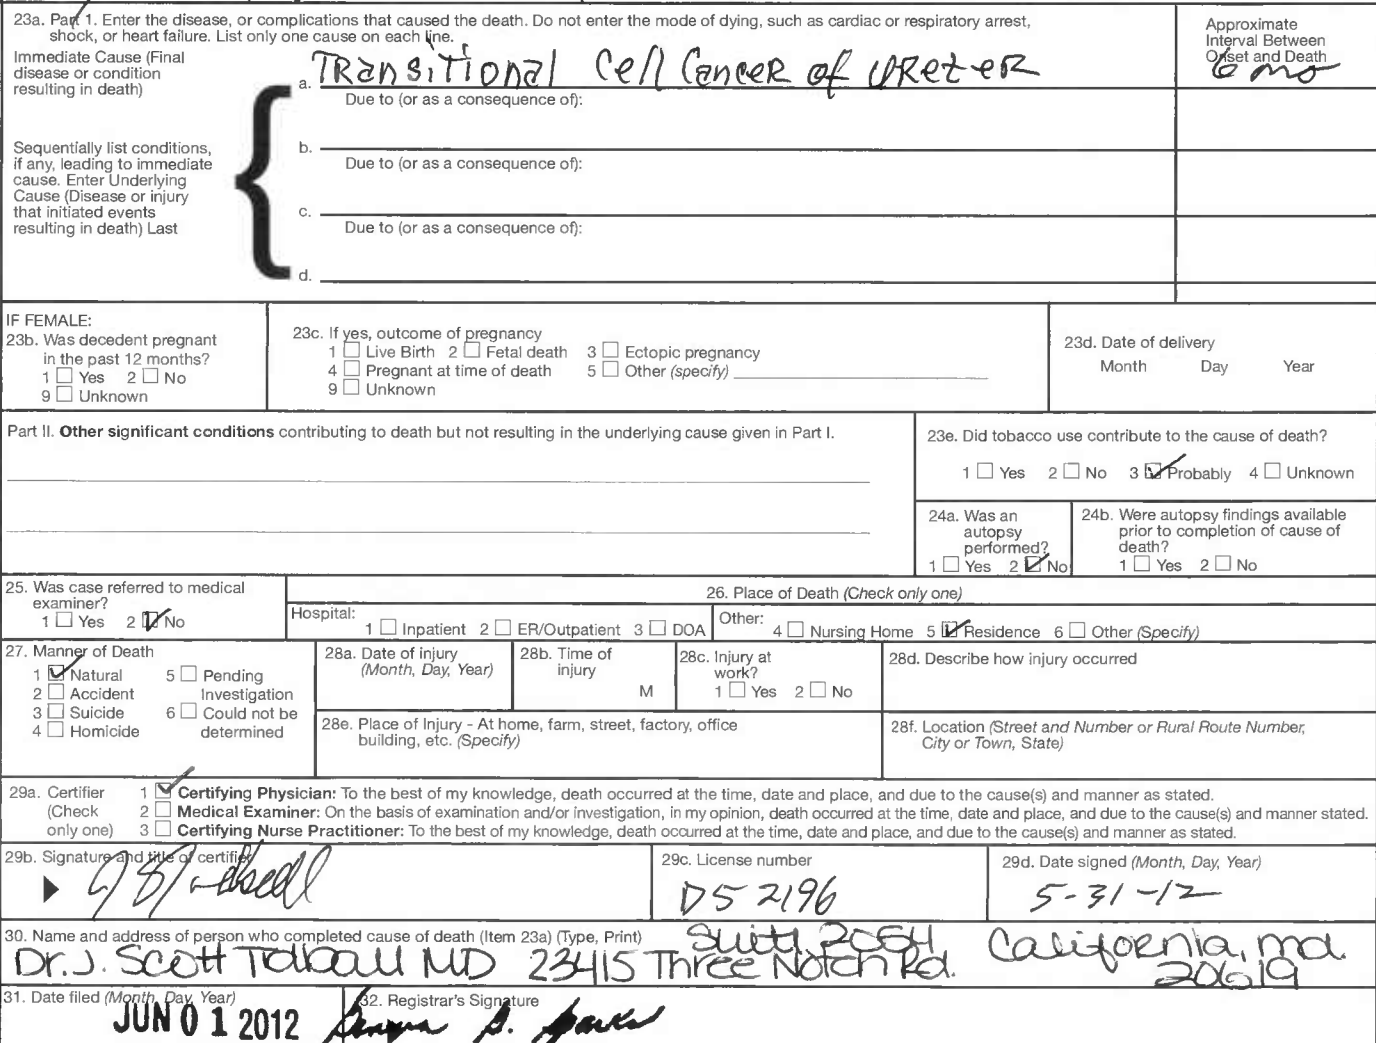 23a. Part 1. Enter the disease, or complications that caused the death. Do not enter the mode of dying, such as cardiac or respiratory arrest,
shock, or heart failure. List only one cause on each line.
Approximate
Interval Between
Onset and Death
6 mo
Immediate Cause (Final
disease or condition
resulting in death)
a. Transitional Cell Cancer of Ureter
Due to (or as a consequence of):
Sequentially list conditions,
if any, leading to immediate
cause. Enter Underlying
Cause (Disease or injury
that initiated events
resulting in death) Last
b.
Due to (or as a consequence of):
c.
Due to (or as a consequence of):
d.
IF FEMALE:
23b. Was decedent pregnant
in the past 12 months?
1 ☐ Yes 2 ☐ No
9 ☐ Unknown
23c. If yes, outcome of pregnancy
1 ☐ Live Birth 2 ☐ Fetal death 3 ☐ Ectopic pregnancy
4 ☐ Pregnant at time of death 5 ☐ Other (specify)
9 ☐ Unknown
23d. Date of delivery
Month Day Year
Part II. Other significant conditions contributing to death but not resulting in the underlying cause given in Part I.
23e. Did tobacco use contribute to the cause of death?
1 ☐ Yes 2 ☐ No 3 ☑ Probably 4 ☐ Unknown
24a. Was an
autopsy
performed?
1 ☐ Yes 2 ☑ No
24b. Were autopsy findings available
prior to completion of cause of
death?
1 ☐ Yes 2 ☐ No
25. Was case referred to medical
examiner?
1 ☐ Yes 2 ☑ No
26. Place of Death (Check only one)
Hospital: 1 ☐ Inpatient 2 ☐ ER/Outpatient 3 ☐ DOA
Other: 4 ☐ Nursing Home 5 ☑ Residence 6 ☐ Other (Specify)
27. Manner of Death
1 ☑ Natural 5 ☐ Pending
2 ☐ Accident Investigation
3 ☐ Suicide 6 ☐ Could not be
4 ☐ Homicide determined
28a. Date of injury
(Month, Day, Year)
28b. Time of
injury
M
28c. Injury at
work?
1 ☐ Yes 2 ☐ No
28d. Describe how injury occurred
28e. Place of Injury - At home, farm, street, factory, office
building, etc. (Specify)
28f. Location (Street and Number or Rural Route Number,
City or Town, State)
29a. Certifier
(Check
only one)
1 ☑ Certifying Physician: To the best of my knowledge, death occurred at the time, date and place, and due to the cause(s) and manner as stated.
2 ☐ Medical Examiner: On the basis of examination and/or investigation, in my opinion, death occurred at the time, date and place, and due to the cause(s) and manner stated.
3 ☐ Certifying Nurse Practitioner: To the best of my knowledge, death occurred at the time, date and place, and due to the cause(s) and manner as stated.
29b. Signature and title of certifier
29c. License number
D52196
29d. Date signed (Month, Day, Year)
5-31-12
30. Name and address of person who completed cause of death (Item 23a) (Type, Print)
Dr. J. Scott MD 23415 Three Notch Rd. California, md.
20619
31. Date filed (Month, Day, Year)
JUN 01 2012
32. Registrar's Signature